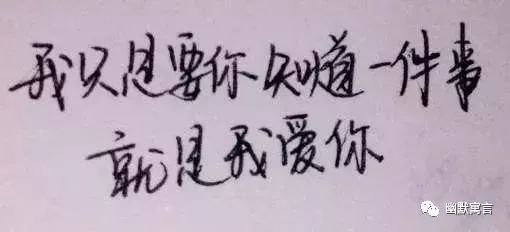 我只是要你知道一件事
就是我爱你
幽默寓言